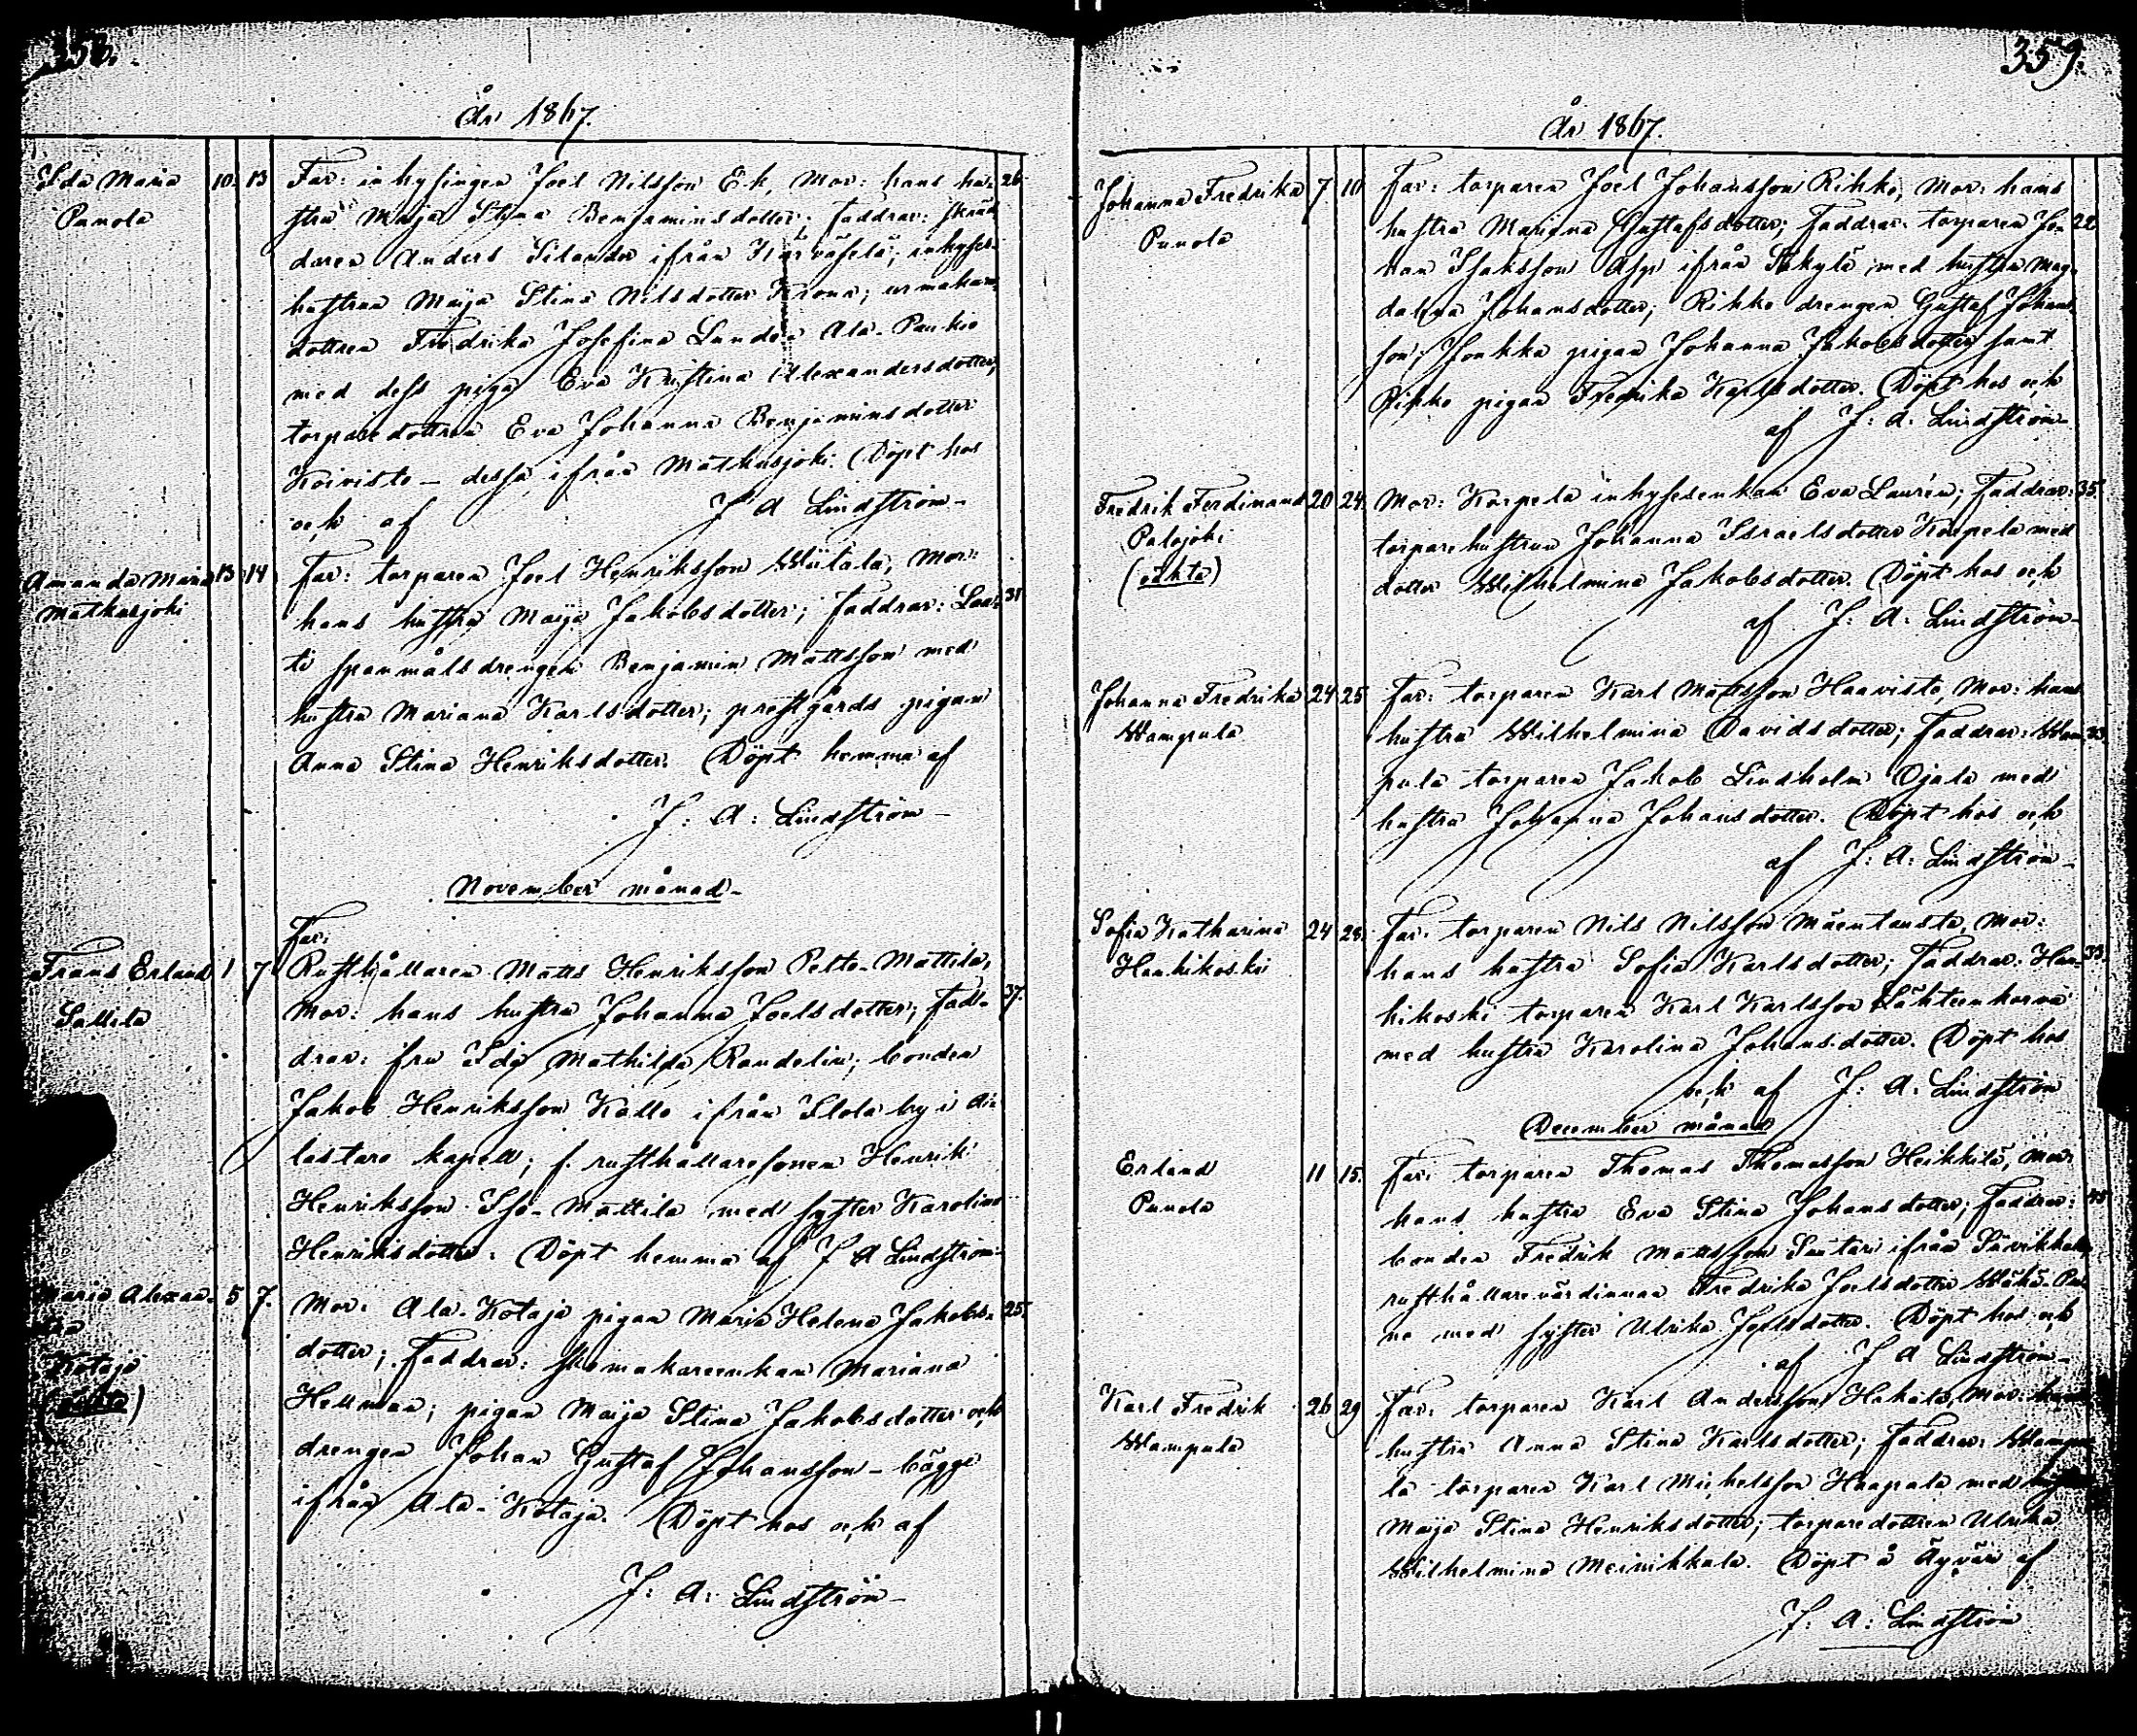 358.
År 1867.
Ida Maria 10. 13 Far: inhysingen Joel Nilsson Ek, Mor: hans hu- 26
Punola stru Maja Stina Benjaminsdotter; Faddrar: skräd
daren Anders Silander ifrån Karväselä; inhyses-
hustrun Maja Stina Nilsdotter Krona; urmakare
dottren Fredrika Josefina Lunden Ala-Paukio
med dess piga Eva Kristina Alexandersdotter,
torparedottren Eva Johanna Benjaminsdotter
Koivisto – dessa ifrån Mathusjoki. Döpt hos
och af J A Lindström –
Amanda Maria 13 14 Far: torparen Joel Henriksson Wiitala, Mor:
Matkusjoki hans hustru Maija Jakobsdotter; Faddrar: Lau- 31
ti spanmålsdrengen Benjamin Mattsson med
hustru Mariana Karlsdotter; prestgårds pigan
Anna Stina Henriksdotter. Döpt hemma af
J: A: Lindström –
November månad –
Far:
Frans Erland 1 7 Rusthållaren Matts Henriksson Pelto-Mattila,
Sallila Mor: hans hustru Johanna Joelsdotter; Fad- 37.
drar: fru Ida Mathilda Randelin; bonden
Jakob Henriksson Kallo ifrån Ilola by i A-
lastaro kapell; f. rusthållaresonen Henrik
Henriksson Iso-Mattila med syster Karolina
Henriksdotter. Döpt hemma af J A Lindström –
Maria Alexan- 5 7. Mor: Ala-Kotaja pigan Maria Helena Jakobs- 25.
dra dotter; Faddrar: skomakareenkan Mariana
Kotaja Hellman; pigan Maija Stina Jakobsdotter och
drengen Johan Gustaf Johansson – bägge
ifrån Ala-Kotaja. Döpt hos och af
J: A: Lindström –
359.
År 1867.
Johanna Fredrika 7. 10 Far: torparen Joel Johansson Rihko, Mor: hans
Punola hustru Mariana Gustafsdotter; Faddrar: torparen Jo- 22
han Isaksson Asp ifrån Säkylä med hustru Mag-
dalena Johansdotter; Rihko drengen Gustaf Johans-
son; Jonkka pigan Johanna Jakobsdotter samt
Rihko pigan Fredrika Karlsdotter. Döpt hos och
af J: A: Lindström –
Fredrik Ferdinand 20 24. Mor: Korpela inhysesenkan Eva Laurén; Faddrar: 35.
Palojoki torparehustrun Johanna Israelsdotter Korpela med
(oäkta) dotter Wilhelmina Jakobsdotter. Döpt hos och
af J: A: Lindström –
Johanna Fredrika 24 25 Far: torparen Karl Mattsson Haavisto, Mor: hans
Wampula hustru Wilhelmina Davidsdotter; Faddrar: Wam- 33.
pula torparen Jakob Lindholm Ojala med
hustru Johanna Johansdotter. Döpt hos och
af J: A: Lindström –
Sofia Katharina 24 28. Far: torparen Nils Nilsson Mäentausta, Mor:
Hanhikoski hans hustru Sofia Karlsdotter; Faddrar: Han- 33.
hikoski torparen Karl Karlsson Lähteenkorva
med hustru Karolina Johansdotter. Döpt hos
och af J: A: Lindström
December månad
Erland 11 15. Far: torparen Thomas Thomasson Heikkilä, Mor:
Punola hans hustru Eva Stina Johansdotter; Faddrar:
bonden Fredrik Mattsson Suutari ifrån Sävikkala,
rusthållarevärdinnan Fredrika Joelsdotter Wähä-Pu-
no med syster Ulrika Joelsdotter. Döpt hos och
af J A Lindström –
Karl Fredrik 26 29 Far: torparen Karl Andersson Hakala, Mor: hans
Wampula hustru Anna Stina Karlsdotter; Faddrar: Wampu-
la torparen Karl Michelsson Haapala med
Maija Stina Henriksdotter; torparedottren Ulrika
Wilhelmina Meinikkala. Döpt å Äyväri af
J: A: Lindström